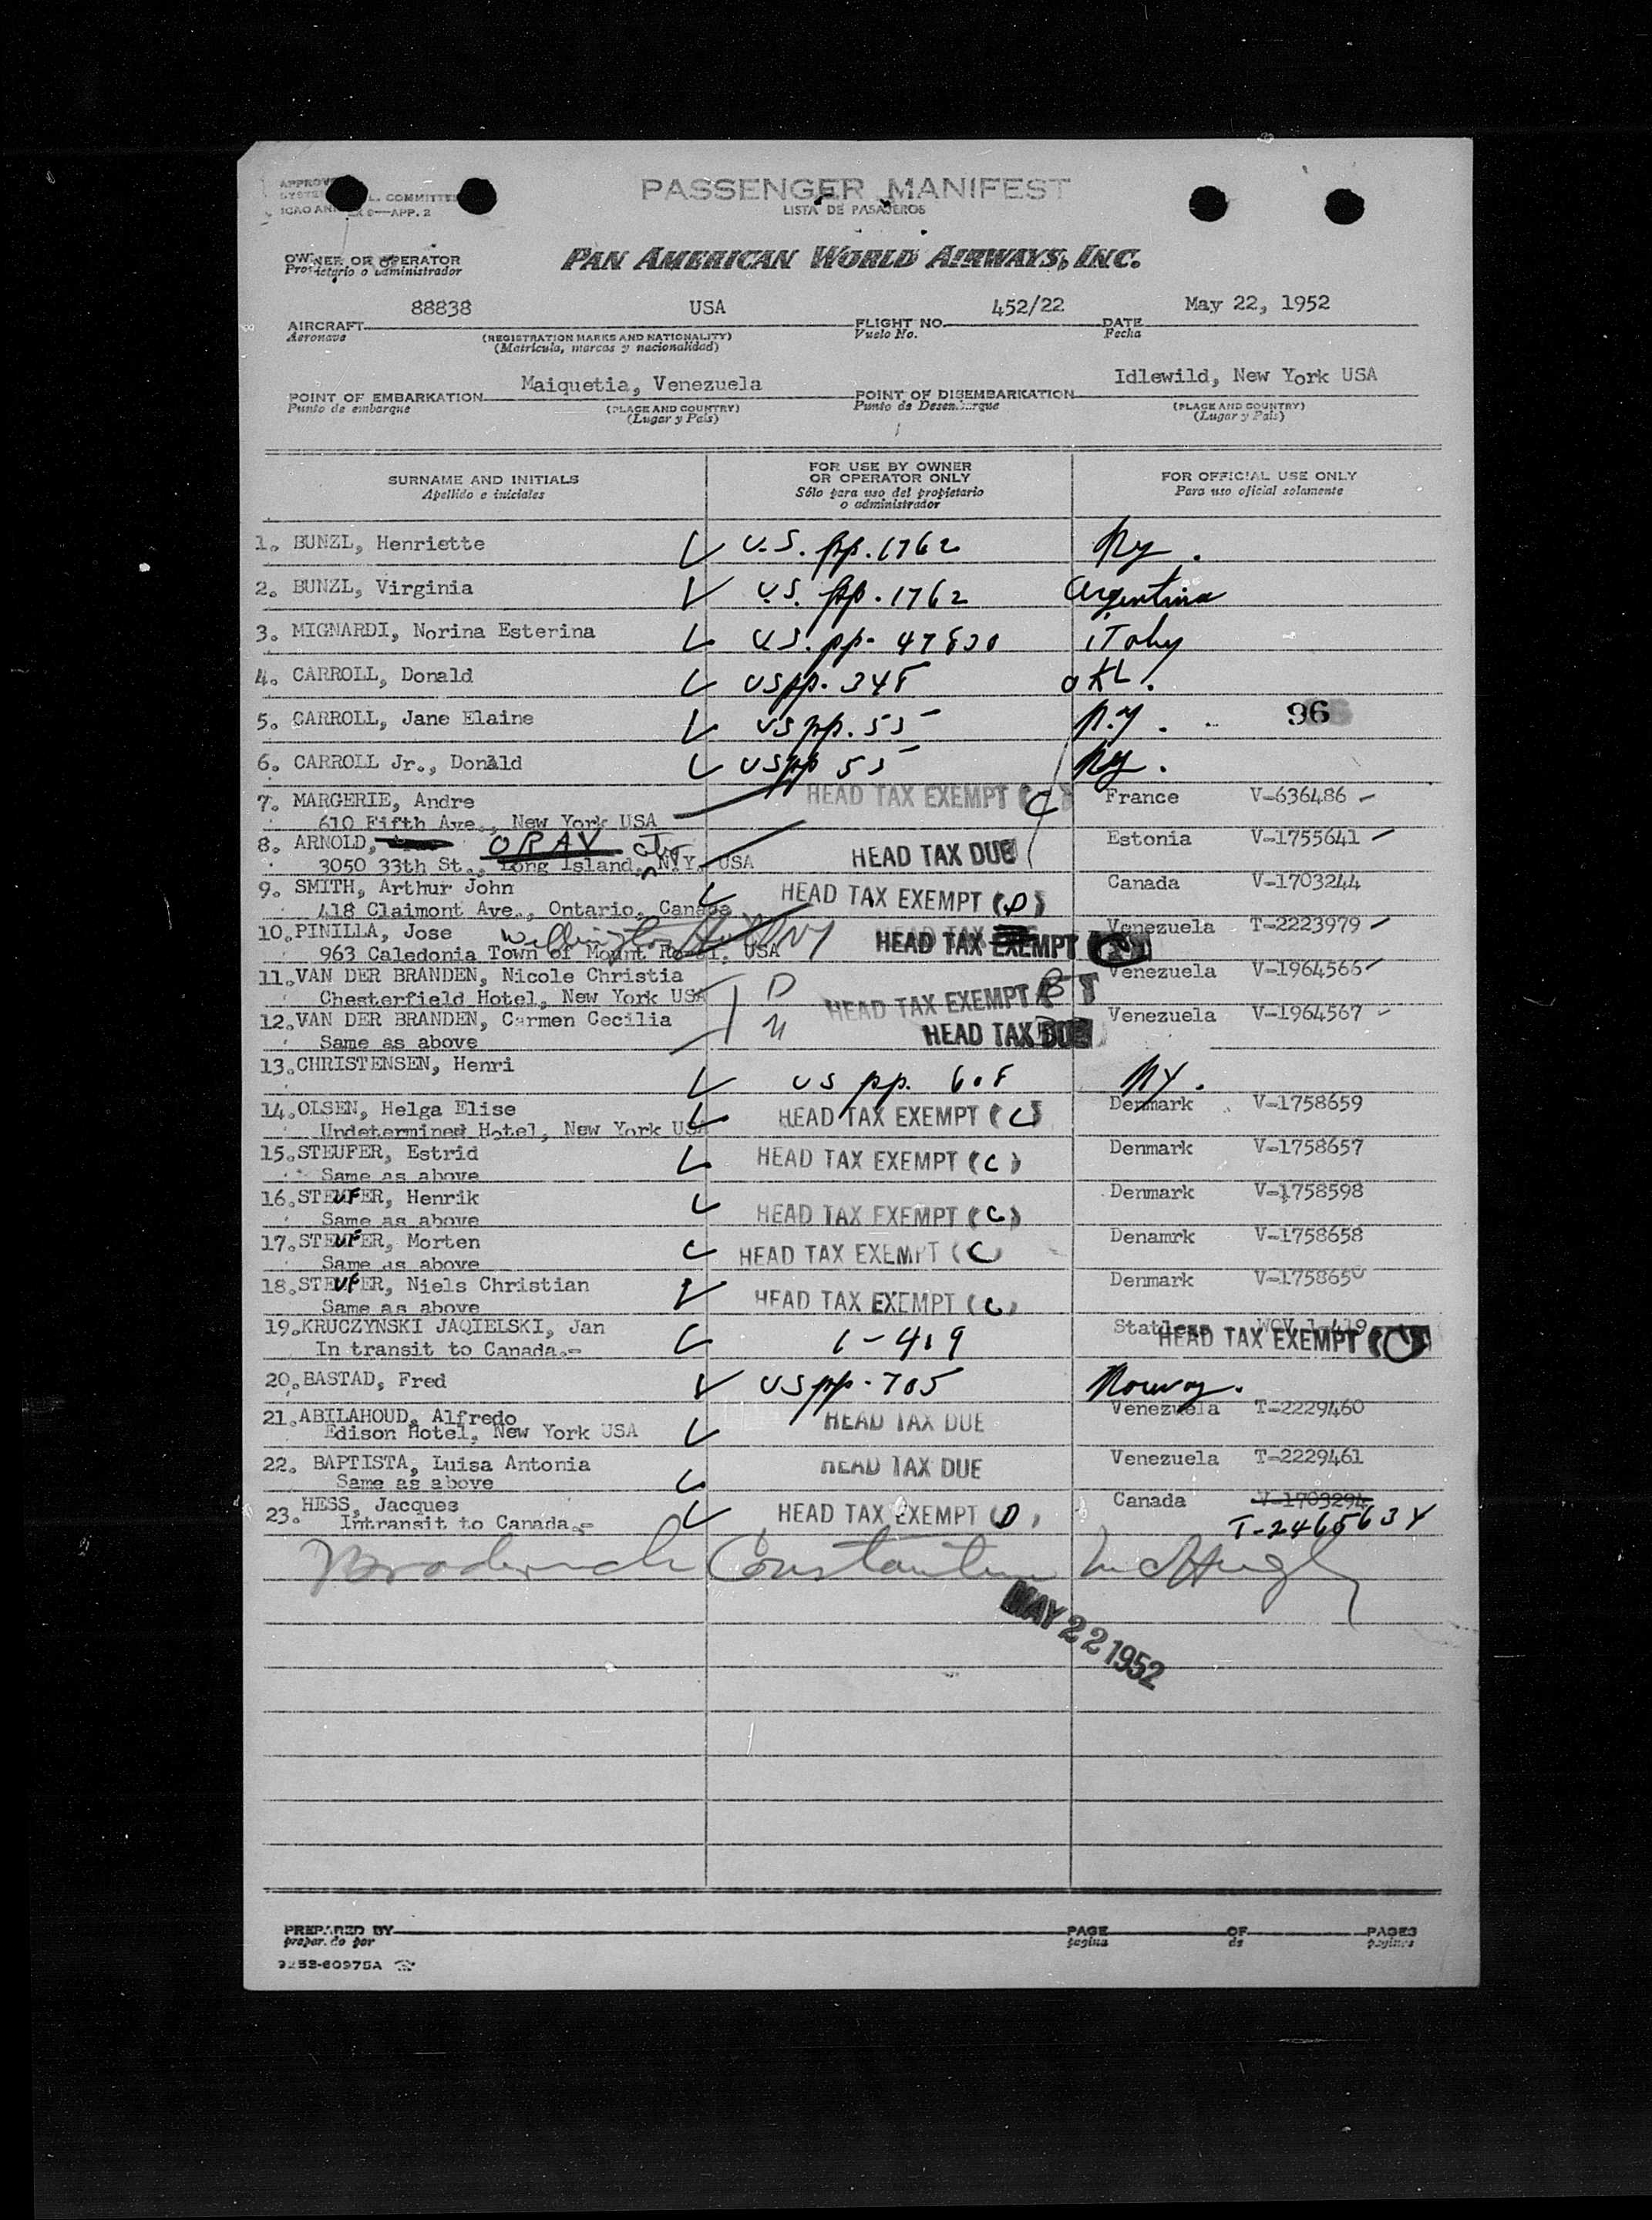 PASSENGER MANIFEST
LISTA DE PASAJEROS
L. COMMITTEE
APP. 2
OWNER OR OPERATOR
Propietario o administrador
PAN AMERICAN WORLD AIRWAYS, INC.
AIRCRAFT 88838 USA FLIGHT NO. 452/22 DATE May 22, 1952
Aeronave (REGISTRATION MARKS AND NATIONALITY) Vuelo No. Fecha
(Matrícula, marcas y nacionalidad)
POINT OF EMBARKATION Maiquetia, Venezuela POINT OF DISEMBARKATION Idlewild, New York USA
Punto de embarque (PLACE AND COUNTRY) Punto de Desembarque (PLACE AND COUNTRY)
(Lugar y País) (Lugar y País)
SURNAME AND INITIALS FOR USE BY OWNER OR OPERATOR ONLY FOR OFFICIAL USE ONLY
Apellido e iniciales Sólo para uso del propietario o administrador Para uso oficial solamente
1. BUNZL, Henriette U.S. pp. 1762 NY.
2. BUNZL, Virginia U.S. pp. 1762 Argentina
3. MIGNARDI, Norina Esterina U.S. pp. 47830 iTaly
4. CARROLL, Donald US pp. 348 OKL.
5. CARROLL, Jane Elaine US pp. 55 N.Y. 96
6. CARROLL Jr., Donald US pp 55 NY.
7. MARGERIE, Andre HEAD TAX EXEMPT (C) France V-636486
610 Fifth Ave., New York USA
8. ARNOLD, ORAV HEAD TAX DUE Estonia V-1755641
3050 33th St., Long Island, N.Y. USA
9. SMITH, Arthur John HEAD TAX EXEMPT (D) Canada V-1703244
418 Claimont Ave., Ontario, Canada
10. PINILLA, Jose Wellington NY HEAD TAX EXEMPT Venezuela T-2223979
963 Caledonia Town of Mount Royal, USA
11. VAN DER BRANDEN, Nicole Christia D HEAD TAX EXEMPT B Venezuela V-1964566
Chesterfield Hotel, New York USA
12. VAN DER BRANDEN, Carmen Cecilia M HEAD TAX DUE Venezuela V-1964567
Same as above
13. CHRISTENSEN, Henri US pp. 608 NY.
14. OLSEN, Helga Elise HEAD TAX EXEMPT (C) Denmark V-1758659
Undetermined Hotel, New York USA
15. STEUFER, Estrid HEAD TAX EXEMPT (C) Denmark V-1758657
Same as above
16. STEUFER, Henrik HEAD TAX EXEMPT (C) Denmark V-1758598
Same as above
17. STEUFER, Morten HEAD TAX EXEMPT (C) Denamrk V-1758658
Same as above
18. STEUFER, Niels Christian HEAD TAX EXEMPT (C) Denmark V-1758650
Same as above
19. KRUCZYNSKI JAQIELSKI, Jan 1-419 Statless WOV 1-419
In transit to Canada.- HEAD TAX EXEMPT (C)
20. BASTAD, Fred US pp. 705 Norway.
21. ABILAHOUD, Alfredo HEAD TAX DUE Venezuela T-2229460
Edison Hotel, New York USA
22. BAPTISTA, Luisa Antonia HEAD TAX DUE Venezuela T-2229461
Same as above
23. HESS, Jacques HEAD TAX EXEMPT (D) Canada V-1703294
Intransit to Canada.- T-2465634
Constantine McHugh
MAY 22 1952
PREPARED BY PAGE OF PAGES
preparado por pagina de paginas
9253-60975A